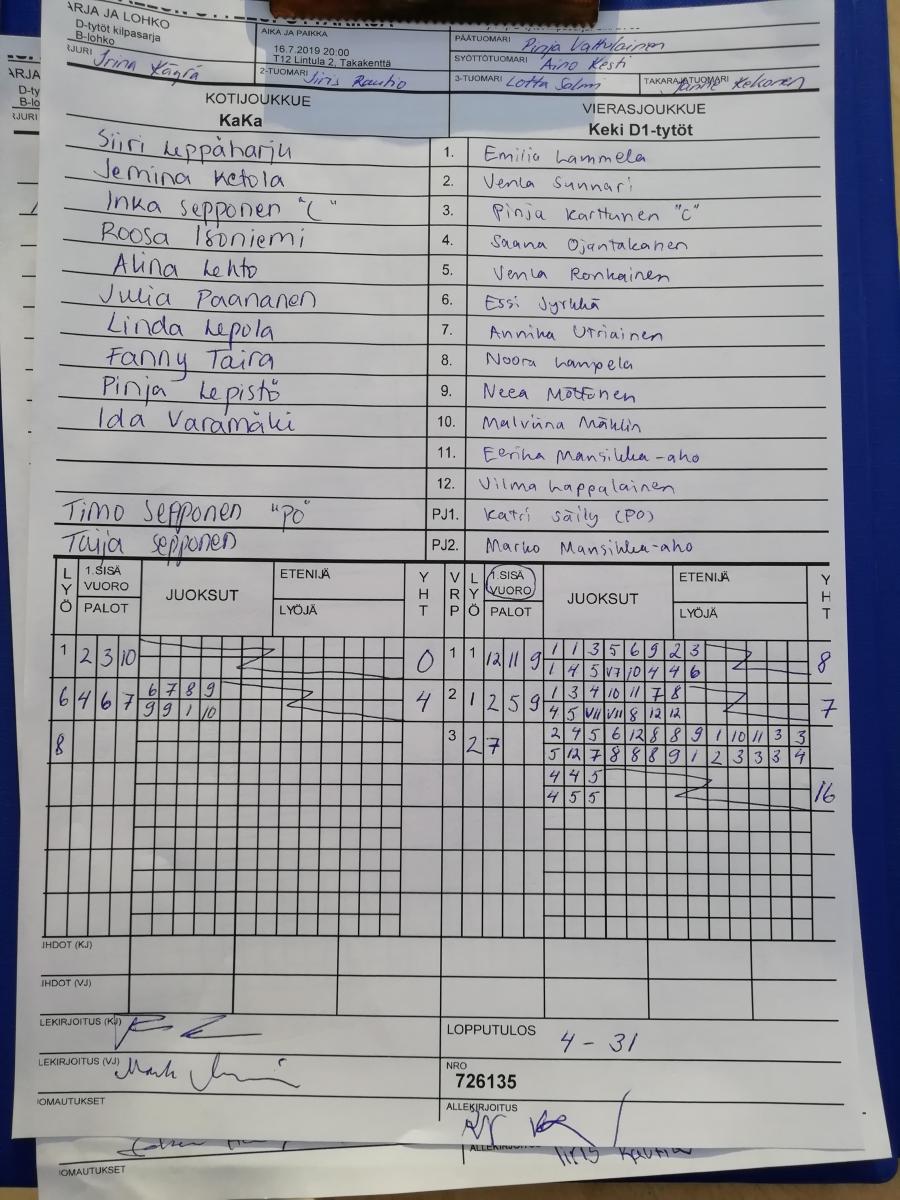 ARJA JA LOHKO
D-tytöt kilpasarja
B-lohko
AIKA JA PAIKKA
16.7.2019 20:00
T12 Lintula 2, Takakenttä
PÄÄTUOMARI Pinja Vattulainen
SYÖTTÖTUOMARI Aino Kesti
2-TUOMARI Iiris Rautio
3-TUOMARI Lotta Salmi
TAKARAJATUOMARI Janne Kekonen
KOTIJOUKKUE
KaKa
VIERASJOUKKUE
Keki D1-tytöt
Siiri Leppäharju 1. Emilia Lammela
Jemina Ketola 2. Venla Sunnari
Inka Sepponen "C" 3. Pinja Karttunen "C"
Roosa Isoniemi 4. Saana Ojantakanen
Alina Lehto 5. Venla Ronkainen
Julia Paananen 6. Essi Jyrkkä
Linda Lepola 7. Annika Utriainen
Fanny Taira 8. Noora Lampela
Pinja Lepistö 9. Neea Möttönen
Ida Varamäki 10. Malviina Mählin
11. Eerika Mansikka-aho
12. Vilma Lappalainen
Timo Sepponen "PO" PJ1. Katri Säily (PO)
Taija Sepponen PJ2. Marko Mansikka-aho
LYÖ 1.SISÄ VUORO PALOT JUOKSUT ETENIJÄ LYÖJÄ YHT VRP LYÖ 1.SISÄ VUORO PALOT JUOKSUT ETENIJÄ LYÖJÄ YHT
1 2 3 10 0 1 1 12 11 9 1 1 3 5 6 9 2 3 8
1 4 5 V7 10 4 4 6
6 4 6 7 6 7 8 9 4 2 1 2 5 9 1 3 4 10 11 7 8 7
9 9 1 10 4 5 VII VII 8 12 12
8 3 2 7 2 4 5 6 12 8 8 9 1 10 11 3 3
5 12 7 8 8 8 9 1 2 3 3 3 4
4 4 5 16
4 5 5
IHDOT (KJ)
IHDOT (VJ)
LEKIRJOITUS (KJ)
LOPPUTULOS 4 - 31
LEKIRJOITUS (VJ)
NRO
726135
OMAUTUKSET
ALLEKIRJOITUS
OMAUTUKSET